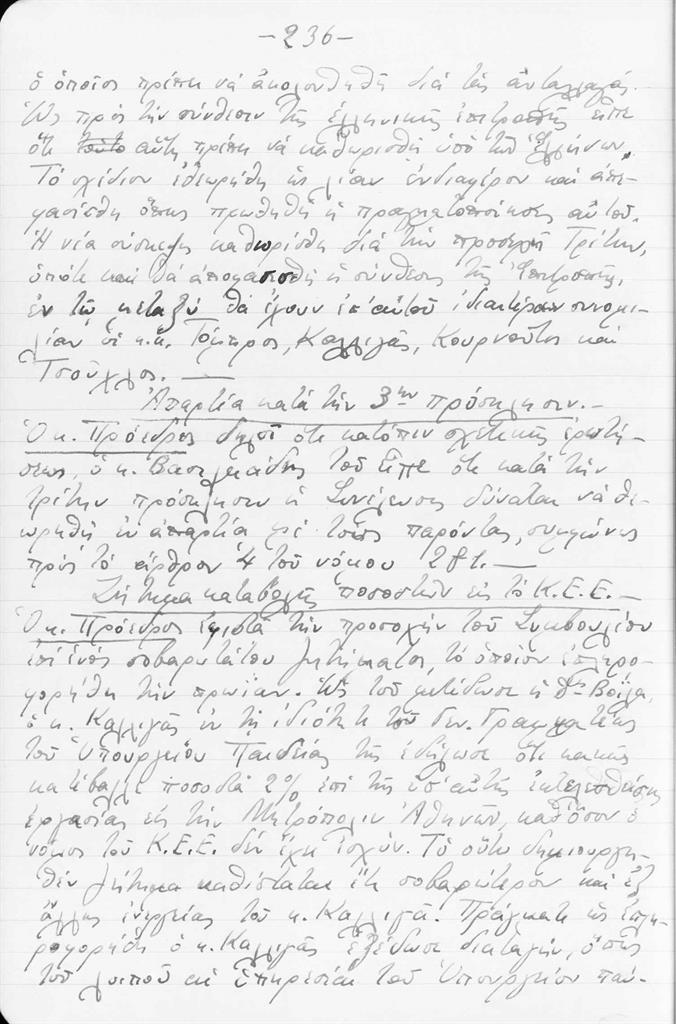 -236-
ὁ ὁποῖος πρέπει νά ἀκολουθηθῆ διά τάς ἀνταλλαγάς.
Ὡς πρός τήν σύνθεσιν τῆς ἑλληνικῆς ἐπιτροπῆς εἶπε
ὅτι τοῦτο αὕτη πρέπει νά καθορισθῆ ὑπό τῶν Ἑλλήνων.
Τό σχέδιον ἐθεωρήθη ὡς λίαν ἐνδιαφέρον καί ἀπε-
φασίσθη ὅπως προωθηθῆ ἡ πραγματοποίησις αὐτοῦ.
Ἡ νέα σύσκεψις καθωρίσθη διά τήν προσεχῆ Τρίτην,
ὁπότε καί θά ἀποφασισθῆ ἡ σύνθεσις τῆς Ἐπιτροπῆς,
ἐν τῷ μεταξύ θά ἔχουν ἐπ' αὐτοῦ ἰδιαιτέραν συνομι-
λίαν οἱ κ.κ. Τόμπρος, Καλλιγᾶς, Κουρνοῦτος καί
Τσοῦχλος. —
Ἀπαρτία κατά τήν 3ην πρόσκλησιν. —
Ὁ κ. Πρόεδρος δηλοῖ ὅτι κατόπιν σχετικῆς ἐρωτή-
σεως, ὁ κ. Βασιλειάδης τοῦ εἶπε ὅτι κατά τήν
τρίτην πρόσκλησιν ἡ Συνέλευσις δύναται νά θε-
ωρηθῆ ἐν ἀπαρτίᾳ μέ τούς παρόντας, συμφώνως
πρός τό ἄρθρον 4 τοῦ νόμου 281. —
Ζήτημα καταβολῆς ποσοστῶν εἰς τό Κ.Ε.Ε. —
Ὁ κ. Πρόεδρος ἐφιστᾶ τήν προσοχήν τοῦ Συμβουλίου
ἐπί ἑνός σοβαρωτάτου ζητήματος, τό ὁποῖον ἐπληρο-
φορήθη τήν πρωΐαν. Ὡς τοῦ μετέδωσε ἡ δνὶς Βόϊλα,
ὁ κ. Καλλιγᾶς ἐν τῇ ἰδιότητι τοῦ Γεν. Γραμματέως
τοῦ Ὑπουργείου Παιδείας τῆς ἐδήλωσε ὅτι κακῶς
κατέβαλε ποσοστά 2% ἐπί τῆς ὑπ' αὐτῆς ἐκτελεσθείσης
ἐργασίας εἰς τήν Μητρόπολιν Ἀθηνῶν, καθ' ὅσον ὁ
νόμος τοῦ Κ.Ε.Ε. δέν ἔχει ἰσχύν. Τό οὕτω δημιουργη-
θέν ζήτημα καθίσταται ἔτι σοβαρώτερον καί ἐξ
ἄλλης ἐνεργείας τοῦ κ. Καλλιγᾶ. Πράγματι ὡς ἐπλη-
ροφορήθη ὁ κ. Καλλιγᾶς ἐξέδωσε διαταγήν, ὅπως
τοῦ λοιποῦ αἱ ὑπηρεσίαι τοῦ Ὑπουργείου παύ-